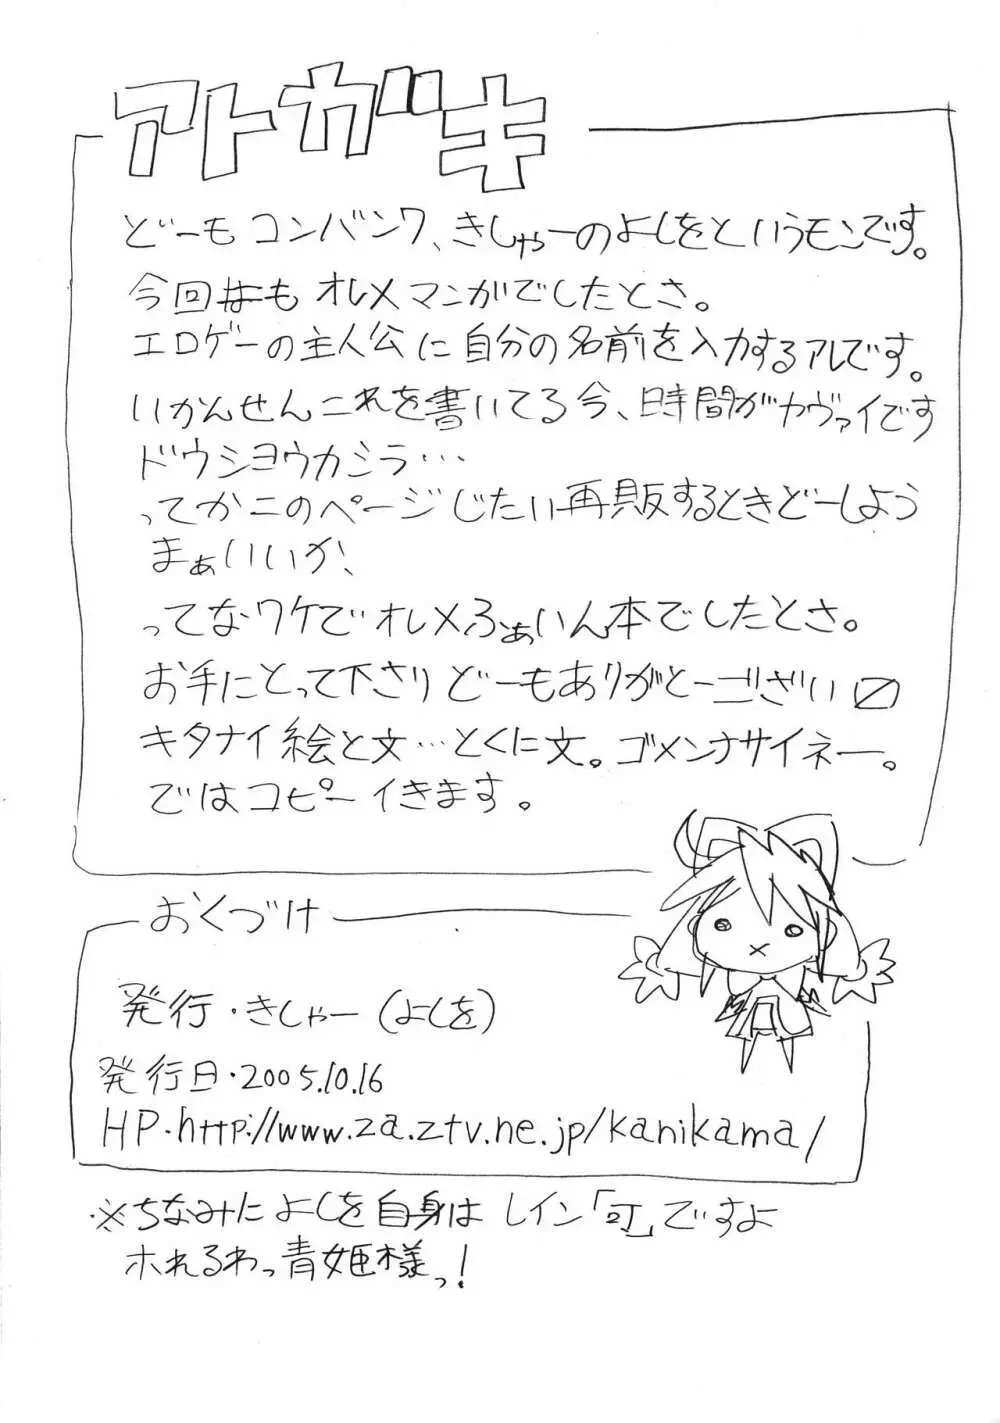 アトガキ
どーもコンバンワ、きしゃーのよしをというモンです。
今回もオレメマンガでしたとさ。
エロゲーの主人公に自分の名前を入力するアレです。
いかんせんこれを書いてる今、時間がヤヴァイです
ドウシヨウカシラ…
ってかこのページじたい再販するときどーしよう
まぁいいか、
ってなワケでオレメふぁいん本でしたとさ。
お手にとって下さりどーもありがとーござい
キタナイ絵と文…とくに文。ゴメンナサイネー。
ではコピーイきます。
おくづけ
発行・きしゃー(よしを)
発行日・2005.10.16
HP・http://www.za.ztv.ne.jp/kanikama/
・※ちなみによしを自身はレイン「訂」ですよ
ホれるわっ青姫様っ!